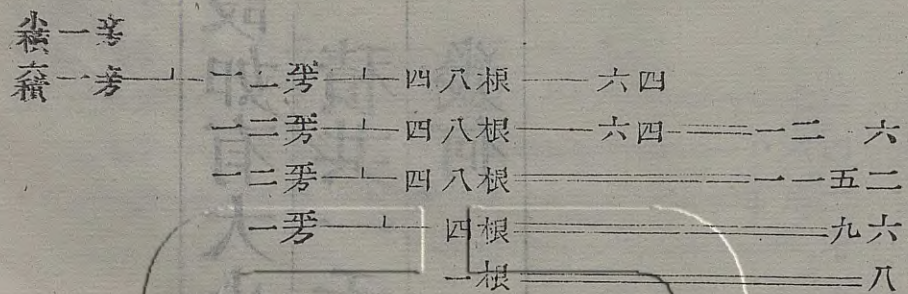 小積一立方
大積一立方⊥一二平方⊥四八根—六四
一二平方⊥四八根—六四=一二 六
一二平方⊥四八根=一一五二
一平方⊥四根=九六
一根=八